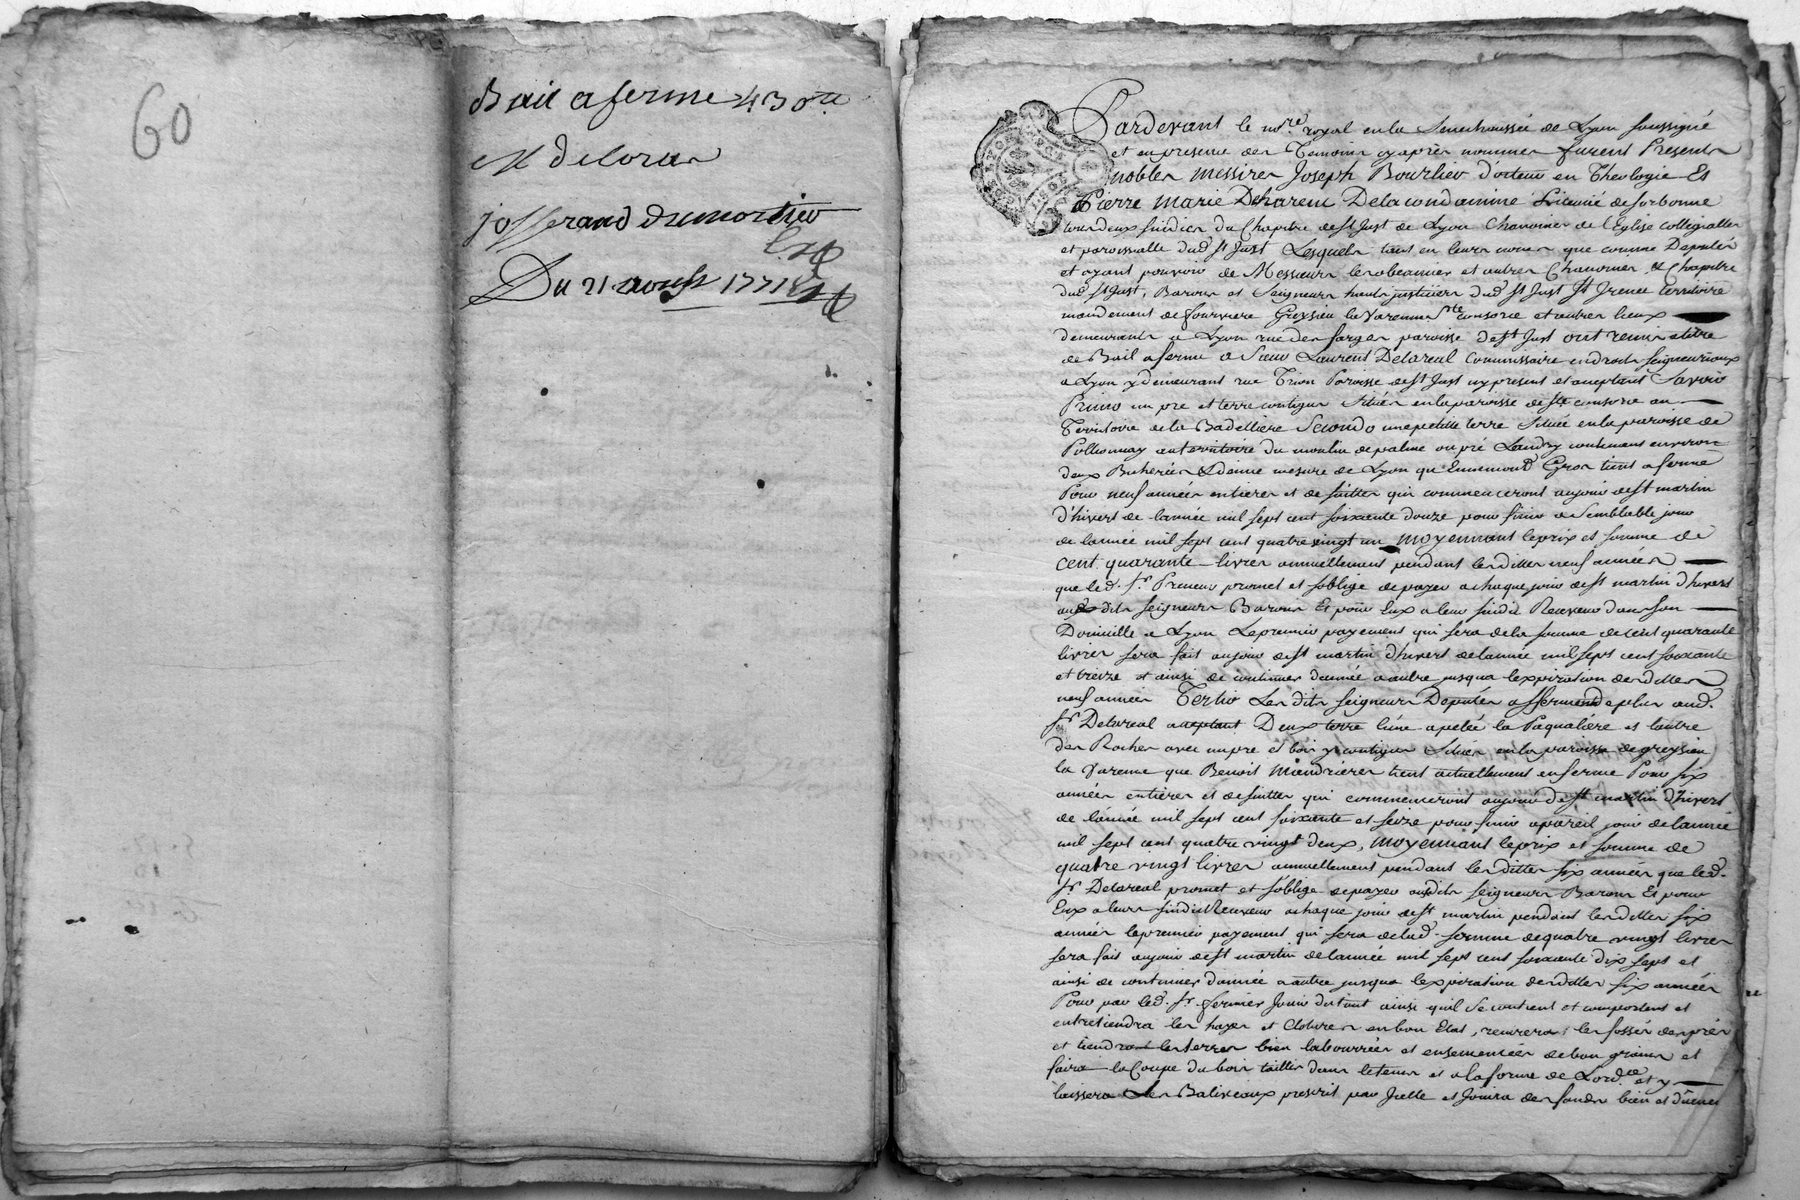 60
Bail a ferme 430ᵗᵗ
M deloras
josserand dumortier
Du 21 aoust 1771
Pardevant le nore royal en la Senechaussée de Lyon soussigné
et en presence des Temoins cy après nommes furent Presents
nobles messires Joseph Bourlier docteur en Theologie Et
Pierre Marie Deharenc Delacondamine Licencié de sorbonne
tous deux sindics du Chapitre de st Just de Lyon Chanoines de l'Eglise collegialle
et paroissialle dud. st Just Lesquels tant en leurs noms que comme Deputés
et ayant pouvoir de Messieurs les obeanciers et autres Chanoines & Chapitre
dud. st Just, Barons et Seigneurs hauts justiciers dud. st Just st Irenee territoire
mandement de fourviere Greysieu la Varenne ste consorce et autres lieux
demeurants a Lyon rue des farges paroisse de st Just ont remis a titre
de Bail a ferme a Sieur Laurent Delareal Commissaire en droits seigneuriaux
a Lyon y demeurant rue Trion Paroisse de st Just cy present et acceptant Savoir
Primo un pre et terre contigus Situés en la paroisse de ste consorce au
Territoire de la Badelliere Secondo une petite terre Située en la paroisse de
Pollionnay au territoire du moulin de palme ou pré Landry contenant environ
deux Bicherées & demie mesure de Lyon qu'Ennemond Gros tient a ferme
Pour neuf années entieres et de suittes qui commenceront au jour de st martin
d'hivert de lannée mil sept cent soixante douze pour finir a Semblable jour
de lannée mil sept cent quatre vingt un moyennant le prix et somme de
cent quarante livres annuellement pendant lesdittes neuf années
que led. sr Preneur promet et soblige de payer a chaque jour de st martin dhivert
aux dits seigneurs Barons Et pour Eux a leur sindic Receveur dans son
Domicille a Lyon Le premier payement qui sera de la somme de cent quarante
livres sera fait au jour de st martin dhivert de lannée mil sept cent soixante
et treize et ainsi de continuer dannée a autre jusqua lexpiration desdittes
neuf années Tertio Lesdits seigneurs Deputés afferment de plus aud.
sr Delareal acceptant Deux terre lune apelée la Paqualiere et lautre
des Rocher avec un pre et bois y contigus Situés en la paroisse de greysieu
la Varenne que Benoit Mandrieres tient actuellement en ferme Pour six
années entieres et de suittes qui commenceront au jour de st martin d'hivert
de lannée mil sept cent soixante et seize pour finir a pareil jour de lannée
mil sept cent quatre vingt deux, moyennant le prix et somme de
quatre vingt livres annuellement pendant les dittes six années que led.
sr Delareal promet et soblige de payer ausdits seigneurs Barons Et pour
Eux a leurs sindic Receveur a chaque jour de st martin pendant les dittes six
années le premier payement qui sera de lad. somme de quatre vingt livres
sera fait au jour de st martin de lannée mil sept cent soixante dix sept et
ainsi de continuer dannée a autre jusqua lexpiration desdittes six années
Pour par led. sr fermier Jouir du tout ainsi quil se contient et comportent et
entretiendra les hayes et Clotures en bon Etat, recurera les fossés des prés
et tiendra les terres bien labourrées et ensemencées de bon grains et
faira la Coupe du bois taillis dans le tems et a la forme de Lordce et y
laissera Les Baliveaux prescrit par Icelle et Jouira des fonds bien et dument